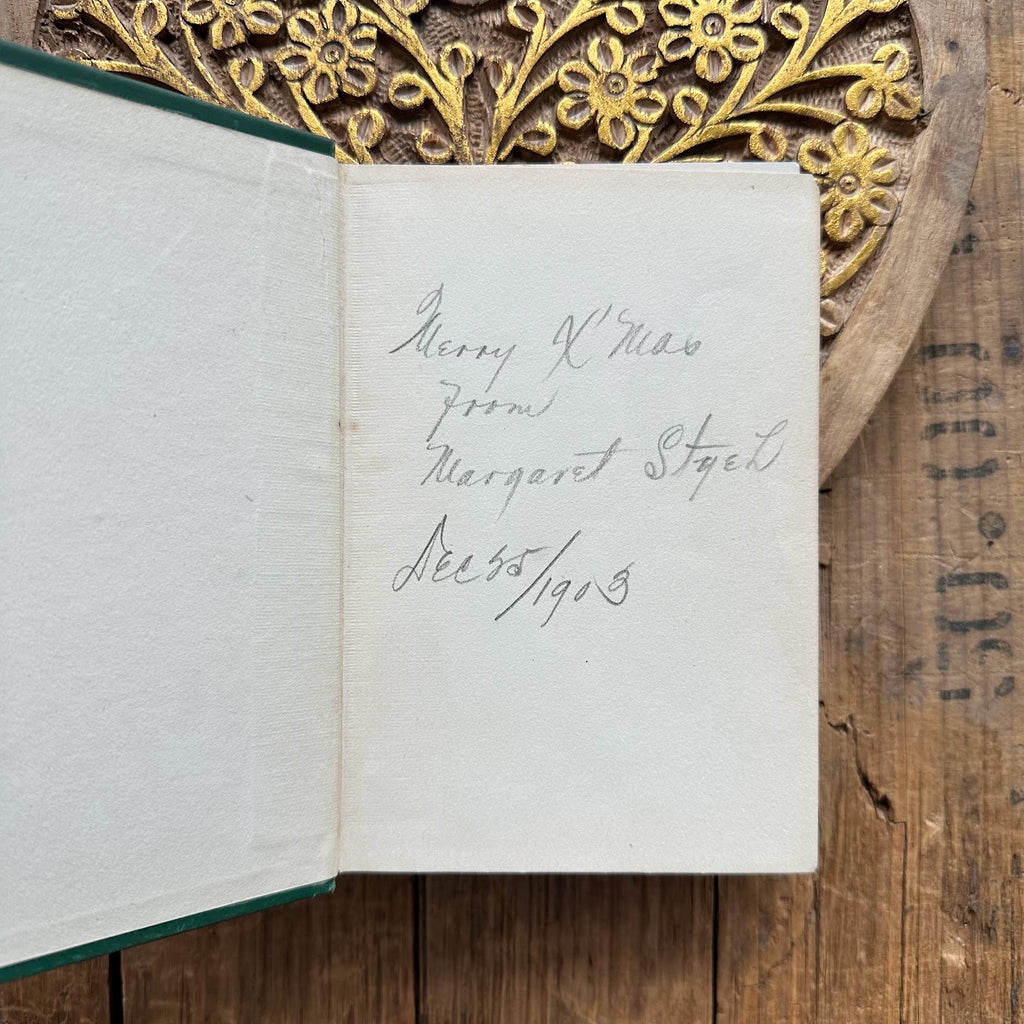 Merry X'Mas
From
Margaret
Dec 25/1903